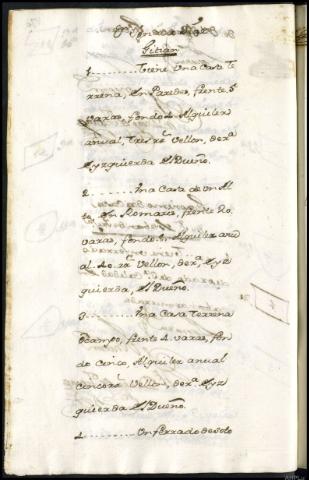 1......... Tiene Una Casa Te
rrena, En Paredes, frente 5
varas, fondo 4. Alquiler
anual, tres rs. Vellon, dera.
Eyzquierda El Dueño.
2......... Una Casa de Un Al
to, En Romara, frente
varas, fondo Alquiler anu
al 40 rs. Vellon, dera. Eyz
quierda, El Dueño.
3......... Una Casa Terrena
Ocampo, frente 4. varas, fon
do cinco, Alquiler anual
cinco rs. Vellon, dera. Eyz
quierda El Dueño.
4......... Un ferrado de soto